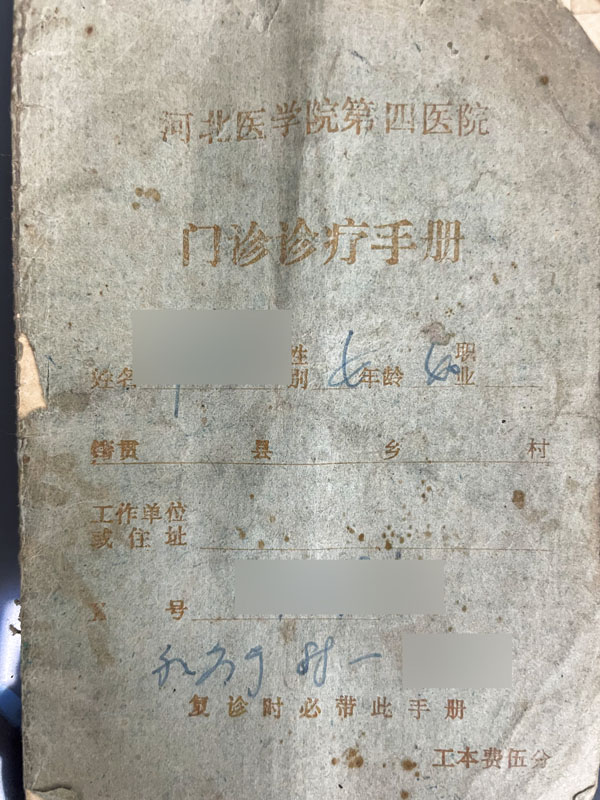 河北医学院第四医院
门诊诊疗手册
姓名 性别 女 年龄 职业
籍贯 县 乡 村
工作单位
或住址
号
复诊时必带此手册
工本费伍分